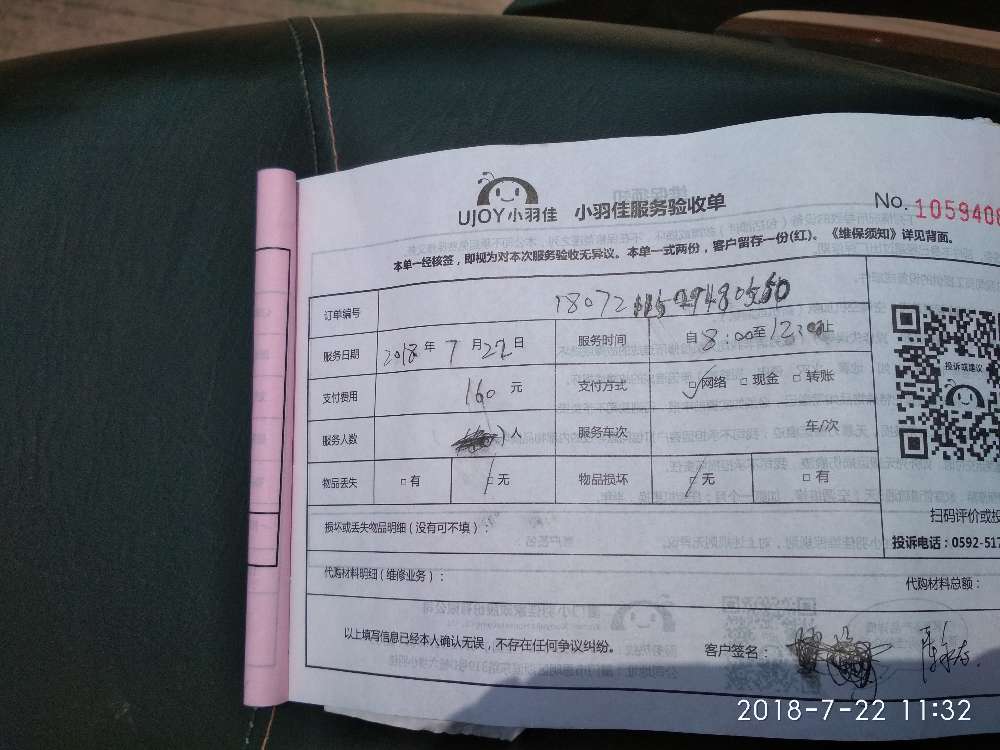 UJOY小羽佳 小羽佳服务验收单 No. 1059408
本单一经核签，即视为对本次服务验收无异议。本单一式两份，客户留存一份(红)。《维保须知》详见背面。
订单编号
服务日期 2018 年 7 月 22 日 服务时间 自 8:00 至 12:00 止
投诉或建议
支付费用 160 元 支付方式 网络 □ 现金 □ 转账
服务人数 人 服务车次 车/次
物品丢失 □ 有 无 物品损坏 无 □ 有
扫码评价或投
损坏或丢失物品明细（没有可不填）：
投诉电话：0592-517
代购材料明细（维修业务）： 代购材料总额：
以上填写信息已经本人确认无误，不存在任何争议纠纷。 客户签名：
2018-7-22 11:32